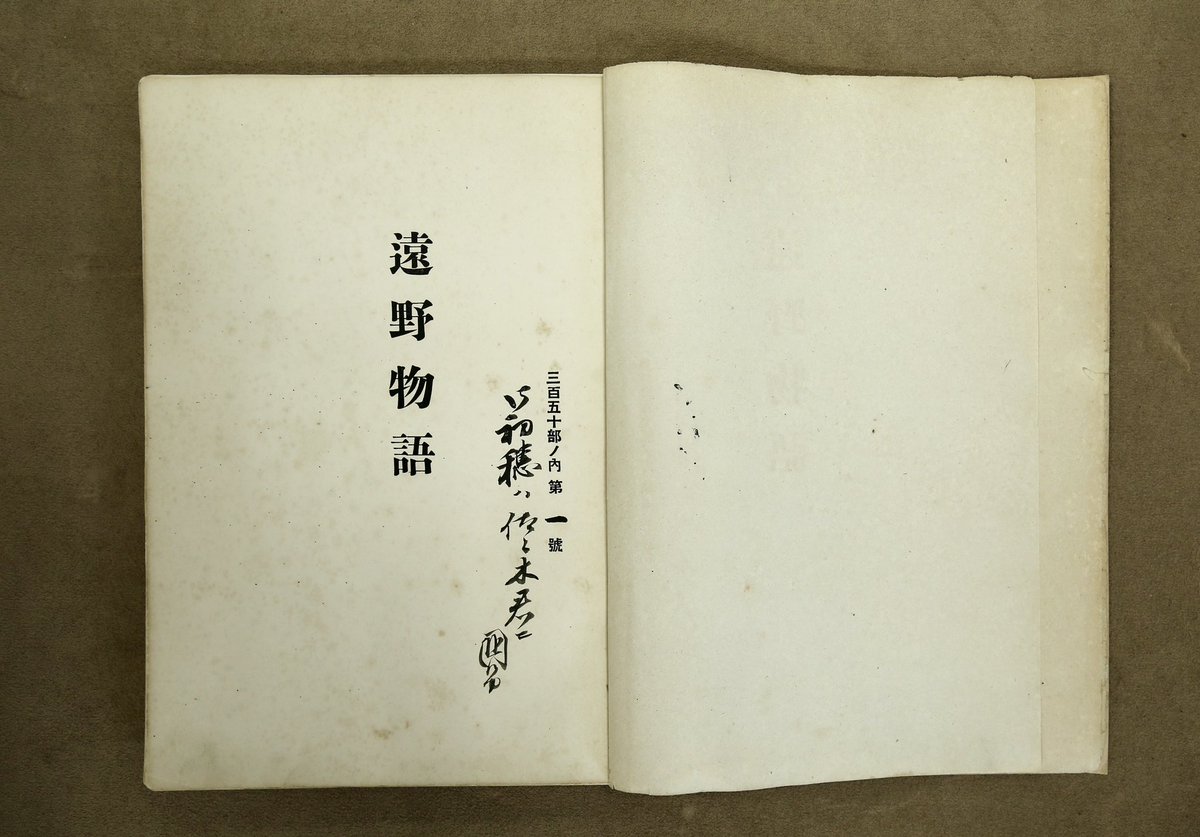 三百五十部ノ內第一號
御初穗ハ佐々木君ニ
國男
遠野物語